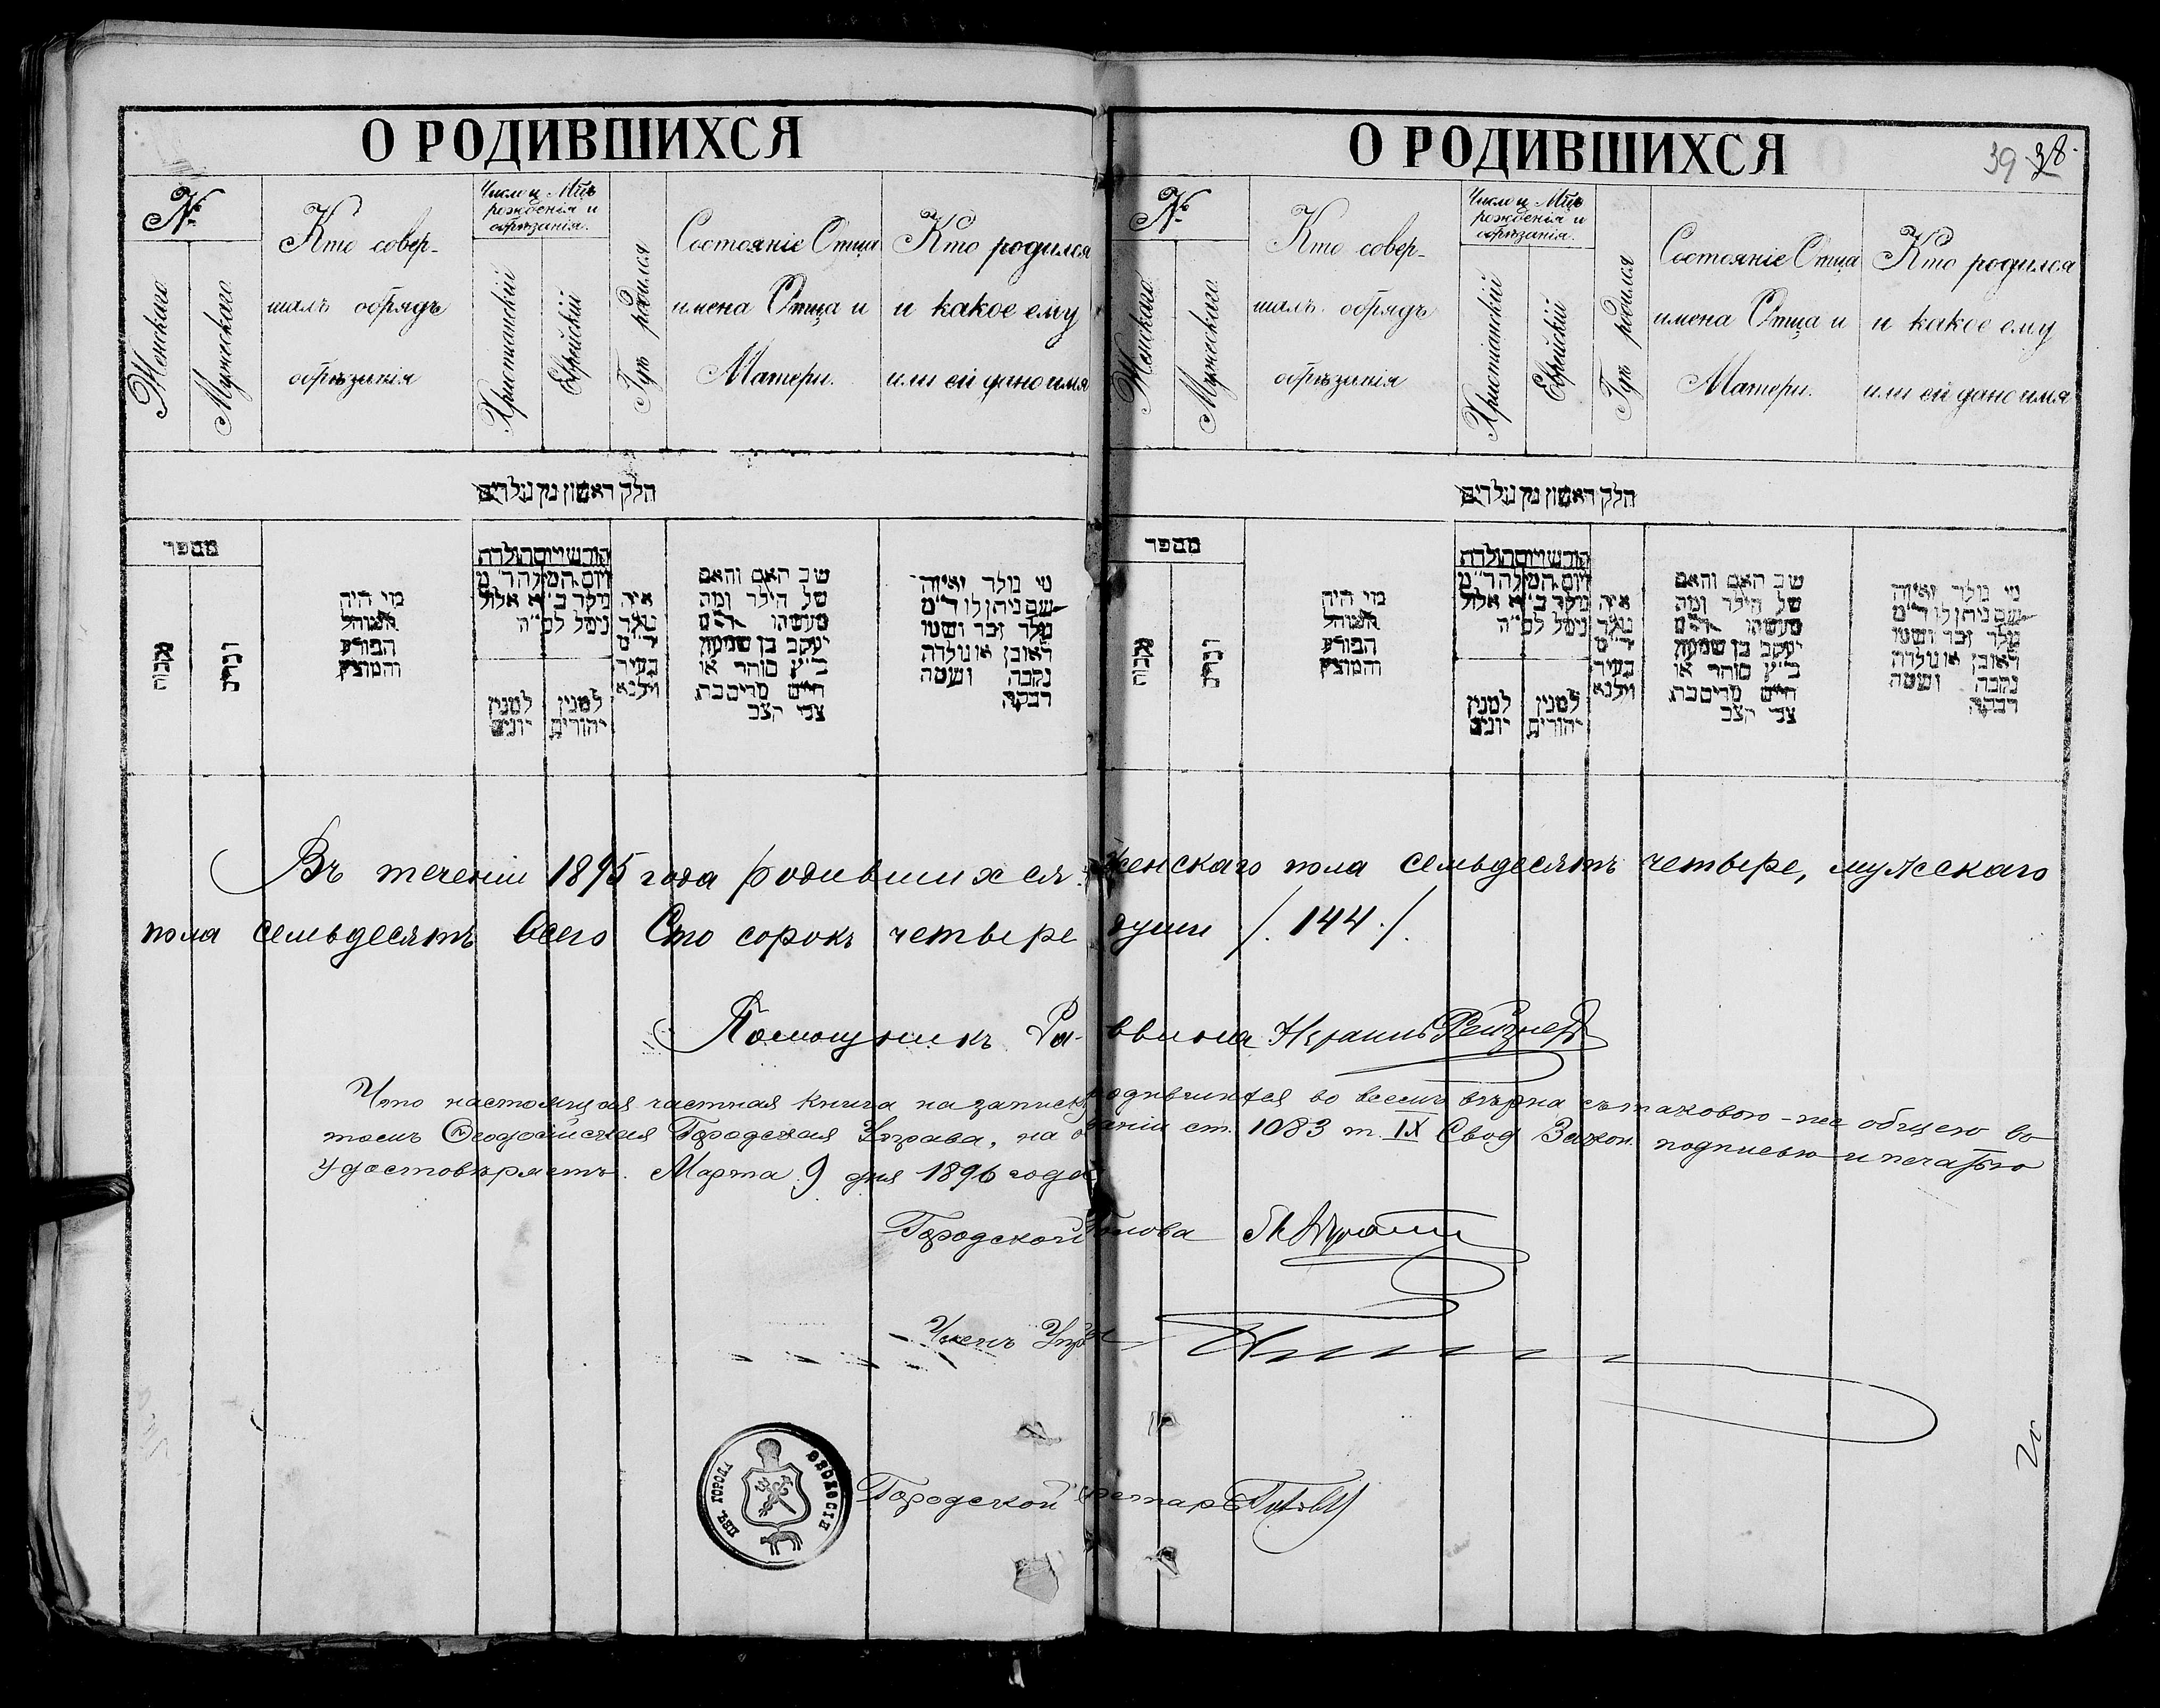 О РОДИВШИХСЯ
№
Женскаго
Мужескаго
Кто совер-
шалъ обрядъ
обрѣзанія
Число и Мцъ
рожденія и
обрѣзанія.
Христіанскій
Еврейскій
Гдѣ родился
Состояніе Отца
имена Отца и
Матери.
Кто родился
и какое ему
или ей дано имя
חלק ראשון מן נולדים
מספר
נקבות
זכרים
מי היה
המוהל
הפורע
והמוצץ
חודש ויום הולדת
ויום המילה ד״מ
נולד ב״א אלול
נימל לס״ה
למנין
יונים
למנין
יהודים
איה
נולד
ד״מ
בעיר
ווילנא
שם האב והאם
של הילד ומה
מעשהו ד״מ
יעקב בן שמעון
כ״ץ סוחר או
חיים מרים בת
צבי הצב
מי נולד ואיזה
שם ניתן לו ד״מ
נולד זכר ושמו
ראובן או נולדה
נקבה ושמה
רבקה
О РОДИВШИХСЯ
39 38.
№
Женскаго
Мужескаго
Кто совер-
шалъ обрядъ
обрѣзанія
Число и Мцъ
рожденія и
обрѣзанія.
Христіанскій
Еврейскій
Гдѣ родился
Состояніе Отца
имена Отца и
Матери.
Кто родился
и какое ему
или ей дано имя
חלק ראשון מן נולדים
מספר
נקבות
זכרים
מי היה
המוהל
הפורע
והמוצץ
חודש ויום הולדת
ויום המילה ד״מ
נולד ב״א אלול
נימל לס״ה
למנין
יונים
למנין
יהודים
איה
נולד
ד״מ
בעיר
ווילנא
שם האב והאם
של הילד ומה
מעשהו ד״מ
יעקב בן שמעון
כ״ץ סוחר או
חיים מרים בת
צבי הצב
מי נולד ואיזה
שם ניתן לו ד״מ
נולד זכר ושמו
ראובן או נולדה
נקבה ושמה
רבקה
Въ теченіи 1895 года родившихся женскаго пола семьдесятъ четыре, мужескаго
пола семьдесятъ Всего Сто сорокъ четыре души /. 144 ./.
Помощникъ Раввина Рейзнеръ
Что настоящая частная книга на записку родившихся во всемъ вѣрна съ таковою-же общею во
томъ Ѳеодосійская Городская Управа, на основаніи ст. 1083 т. IX Свод Закон. подписью и печатью
удостовѣряетъ. Марта 9 дня 1896 года
Городской Голова
Членъ Управы
Городской Секретарь
ГОРОДА ѲЕОДОСІИ